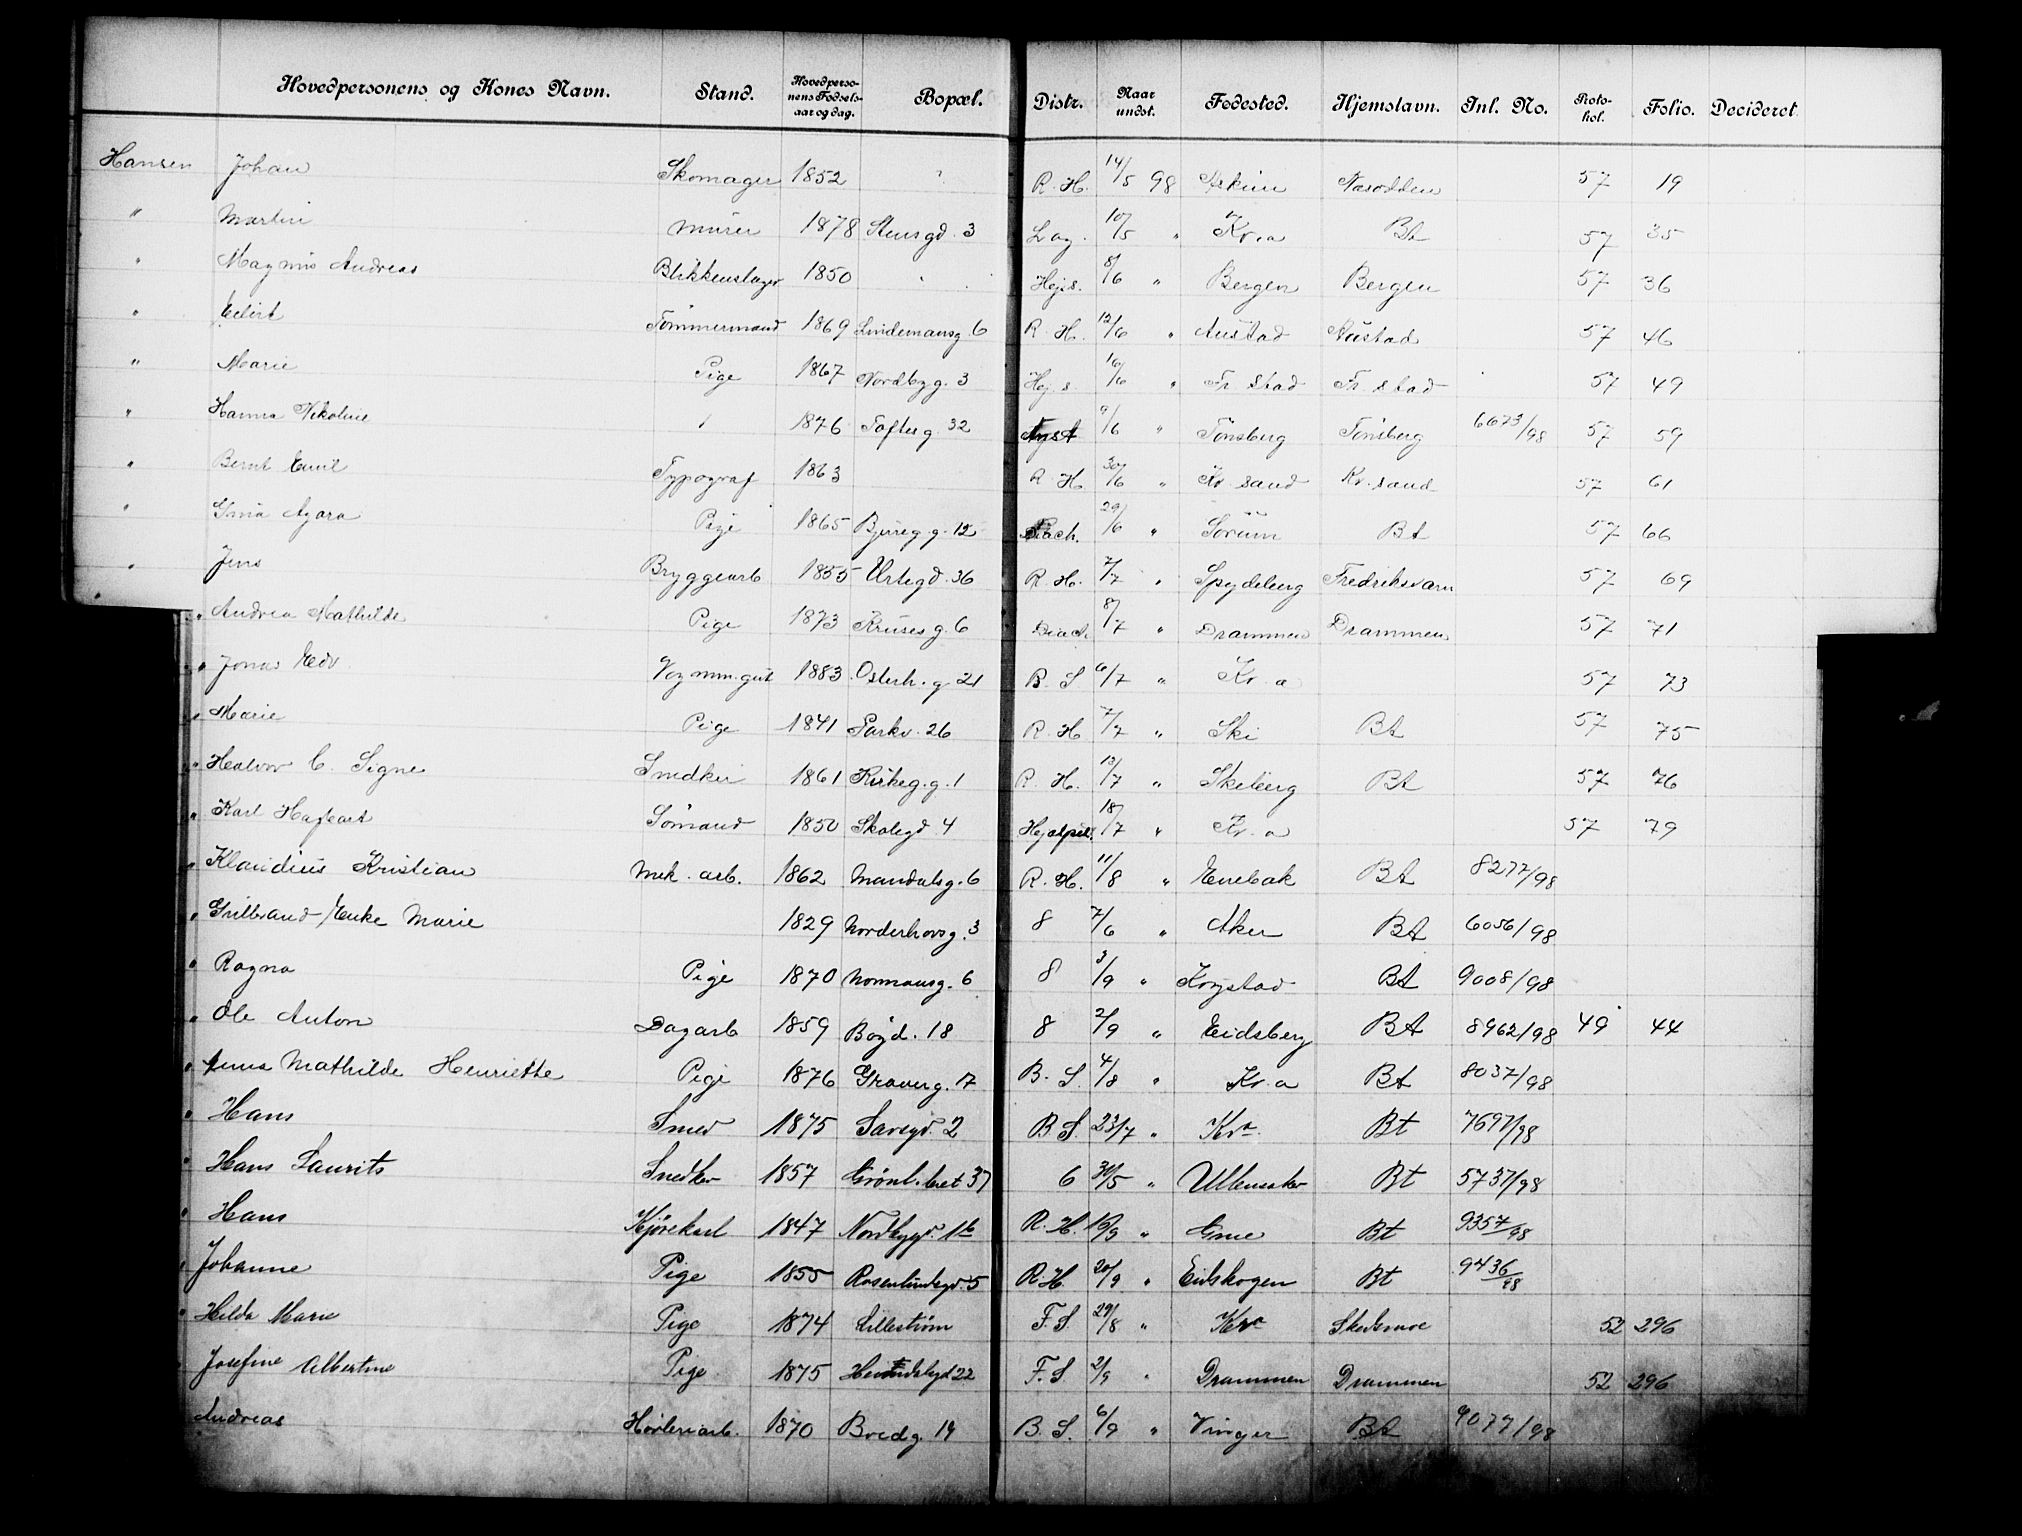 Hovedpersonens og Kones Navn. Stand. Hovedpersonens Fødselsaar og dag. Bopæl. Distr. Naar undst. Fødested. Hjemstavn. Inl. No. Protokol. Folio. Decideret.
Hansen Johan Skomager 1852 " R. H. 14/5 98 Askim Næsodden 57 19
" Martin Murer 1878 Stensgd. 3 Lag. 10/5 " Kr.a Bt 57 35
" Magnus Andreas Blikkenslager 1850 " Hejs. 8/6 " Bergen Bergen 57 36
" Eilert Tømmermand 1869 Lindemansg. 6 R. H. 12/6 " Austad Austad 57 46
" Marie Pige 1867 Nordbyg. 3 Hej. s. 10/6 " Fr. stad Fr. stad 57 49
" Hanna Nikoline 1876 Tofteg. 32 9/6 " Tönsberg Tönsberg 6673/98 57 59
" Bernt Emil Typograf 1863 R. H 30/6 " Kr. sand Kr. sand 57 61
" Gina Agara Pige 1865 12 29/6 " Sörum Bt 57 66
" Jens Bryggearb 1855 Urtegd. 36 R. H. 7/7 " Spydeberg Fredriksværn 57 69
" Andrea Mathilde Pige 1873 Krusesg. 6 Diach. 8/7 " Drammen Drammen 57 71
" Jonas Edv. Vognm.gut 1883 Osterh. g. 21 B. S 6/7 " Kr. a 57 73
" Marie Pige 1841 Parkv. 26 R. H 7/7 " Ski Bt 57 75
" Halvor C. Signe Snedker 1861 Kirkeg. g. 1 R. H. 13/7 " Skiberg Bt 57 76
" Karl Hagbart Sömand 1850 Skolegd 4 Hjælpel. 18/7 " Kr. a 57 79
" Klaudius Kristian Mek. arb. 1862 Mandalsg. 6 R. H. 11/8 " Enebak Bt 8277/98
" Gulbrand Enke Marie 1829 Norderhovsg. 3 8 7/6 " Aker Bt 6056/98
" Ragna Pige 1870 Normansg. 6 8 3/9 " Krogstad Bt 9008/98
" Ole Anton Dagarb 1859 Bögd. 18 8 2/9 " Eidsberg Bt 8962/98 49 44
" Anna Mathilde Henriette Pige 1876 Graverg. 17 B. S. 4/8 " Kr. a Bt 8037/98
" Hans Smed 1875 Sarsgd. 2 B S. 23/7 " Kra. Bt 7697/98
" Hans Laurits Snedker 1857 Grønl. leret 37 6 30/5 " Ullensaker Bt 5737/98
" Hans Kjørekarl 1847 Nordbygd. 16 R. H. 16/9 " Grue Bt 9357/98
" Johanne Pige 1855 Rosenlundsgd. 5 R. H 20/9 " Eidskogen Bt 9436/98
" Hilda Marie Pige 1874 Lillestrøm F. S. 29/8 " Kra Skedsmoe 52 296
" Josefine Albertine Pige 1875 22 F. S. 2/9 " Drammen Drammen 52 296
Andreas Høvleriarb. 1870 Bredg. 14 B. S. 6/9 " Vinger Bt 9077/98